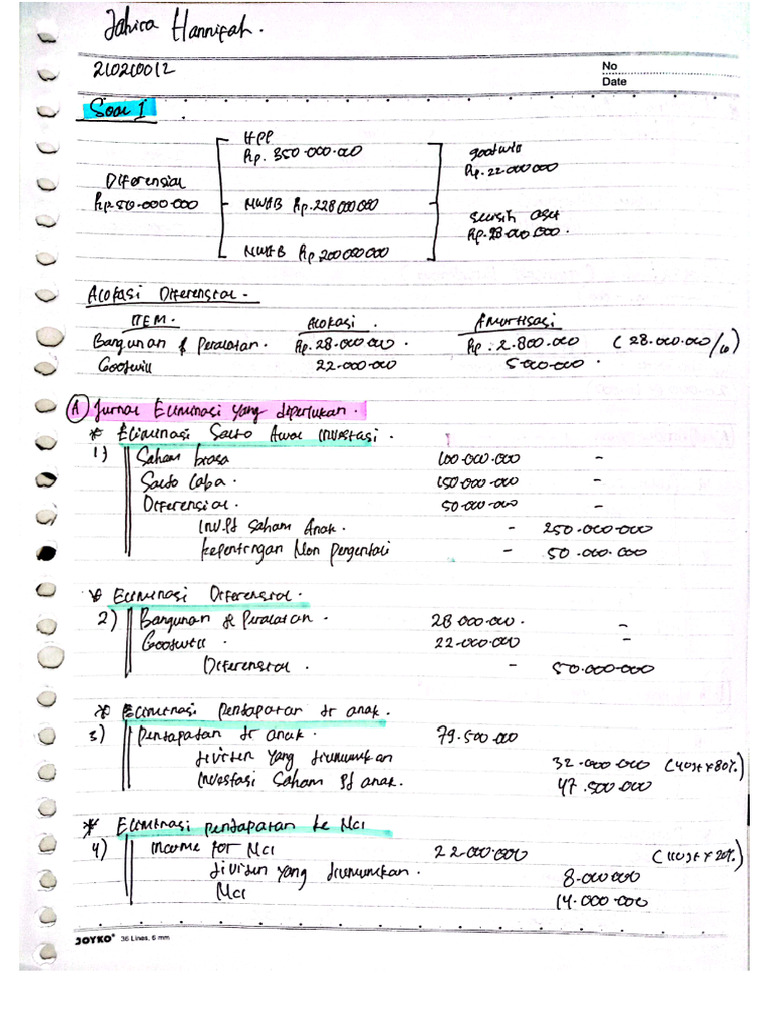 Jahira Hannifah.
210210012
No
Date
Soal I
HPP
Rp. 350.000.000
Diferensial
Rp.50.000.000
NWAB Rp.228000000
NWAB Rp 200000000
goodwill
Rp. 22.000000
Selisih aset
Rp.28.000.000.
Alokasi Diferensial.
ITEM. Alokasi. Amortisasi
Bangunan & Peralatan. Rp. 28.000.000. Rp. 2.800.000 (28.000.000/10)
Goodwill 22.000000 5000000.
A Jurnal Eliminasi yang diperlukan.
* Eliminasi Saldo Awal Investasi.
1) Saham biasa 100.000.000 -
Saldo Laba. 150.000.000 -
Diferensial. 50.000.000 -
Inv.Pd Saham Anak. - 250.000.000
Kepentingan Non Pengendali - 50.000.000
* Eliminasi Diferensial.
2) Bangunan & Peralatan. 28.000.000. -
Goodwill. 22.000.000 -
Diferensial. - 50.000.000
* Eliminasi Pendapatan dr anak.
3) Pendapatan dr anak. 79.500.000
dividen yang diumumkan 32.000.000 (40jt x 80%)
Investasi Saham Pd anak. 47.500.000
* Eliminasi pendapatan ke NCI
4) Income for NCI 22.000.000 (110jt x 20%)
dividen yang diumumkan. 8.000000
NCI 14.000.000
JOYKO® 36 Lines, 6 mm